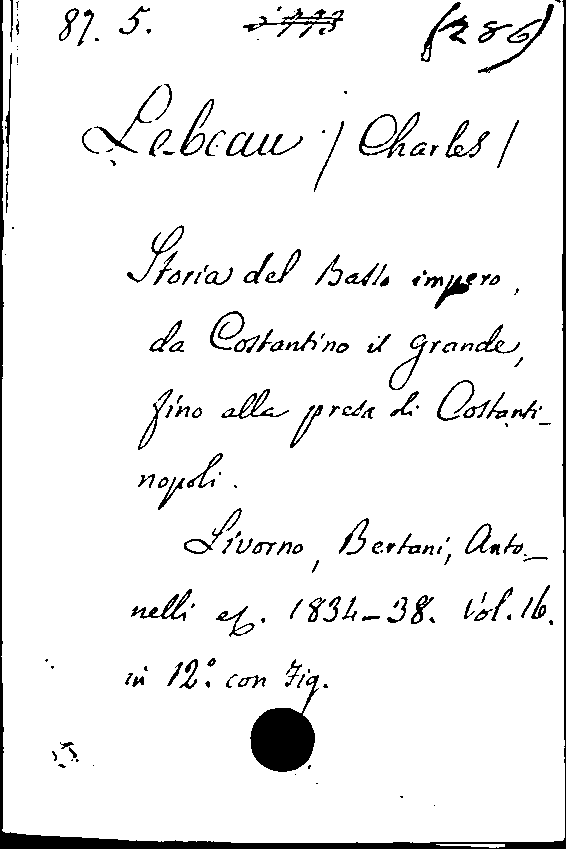 87. 5. (286)
Lebeau / Charles /
Storia del Basso impero,
da Costantino il grande,
fino alla presa di Costanti_
nopoli.
Livorno, Bertani, Anto_
nelli e C. 1834_38. Vol. 16.
in 12.° con Fig.